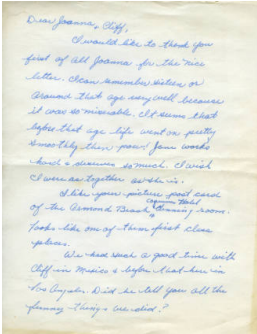 Dear Joanna & Cliff,
I would like to thank you
first of all Joanna for the nice
letter. I can remember sixteen or
around that age very well because
it was so miserable. It seems that
before that age life went on pretty
smoothly then pow! Jane works
hard & deserves so much. I wish
I were as together as she is.
I like your picture post card
of the Ormond Beach Hotel
dinning room.
Looks like one of them first class
places.
We had such a good time with
Cliff in Mexico & before that here in
Los Angeles. Did he tell you all the
funny things we did?